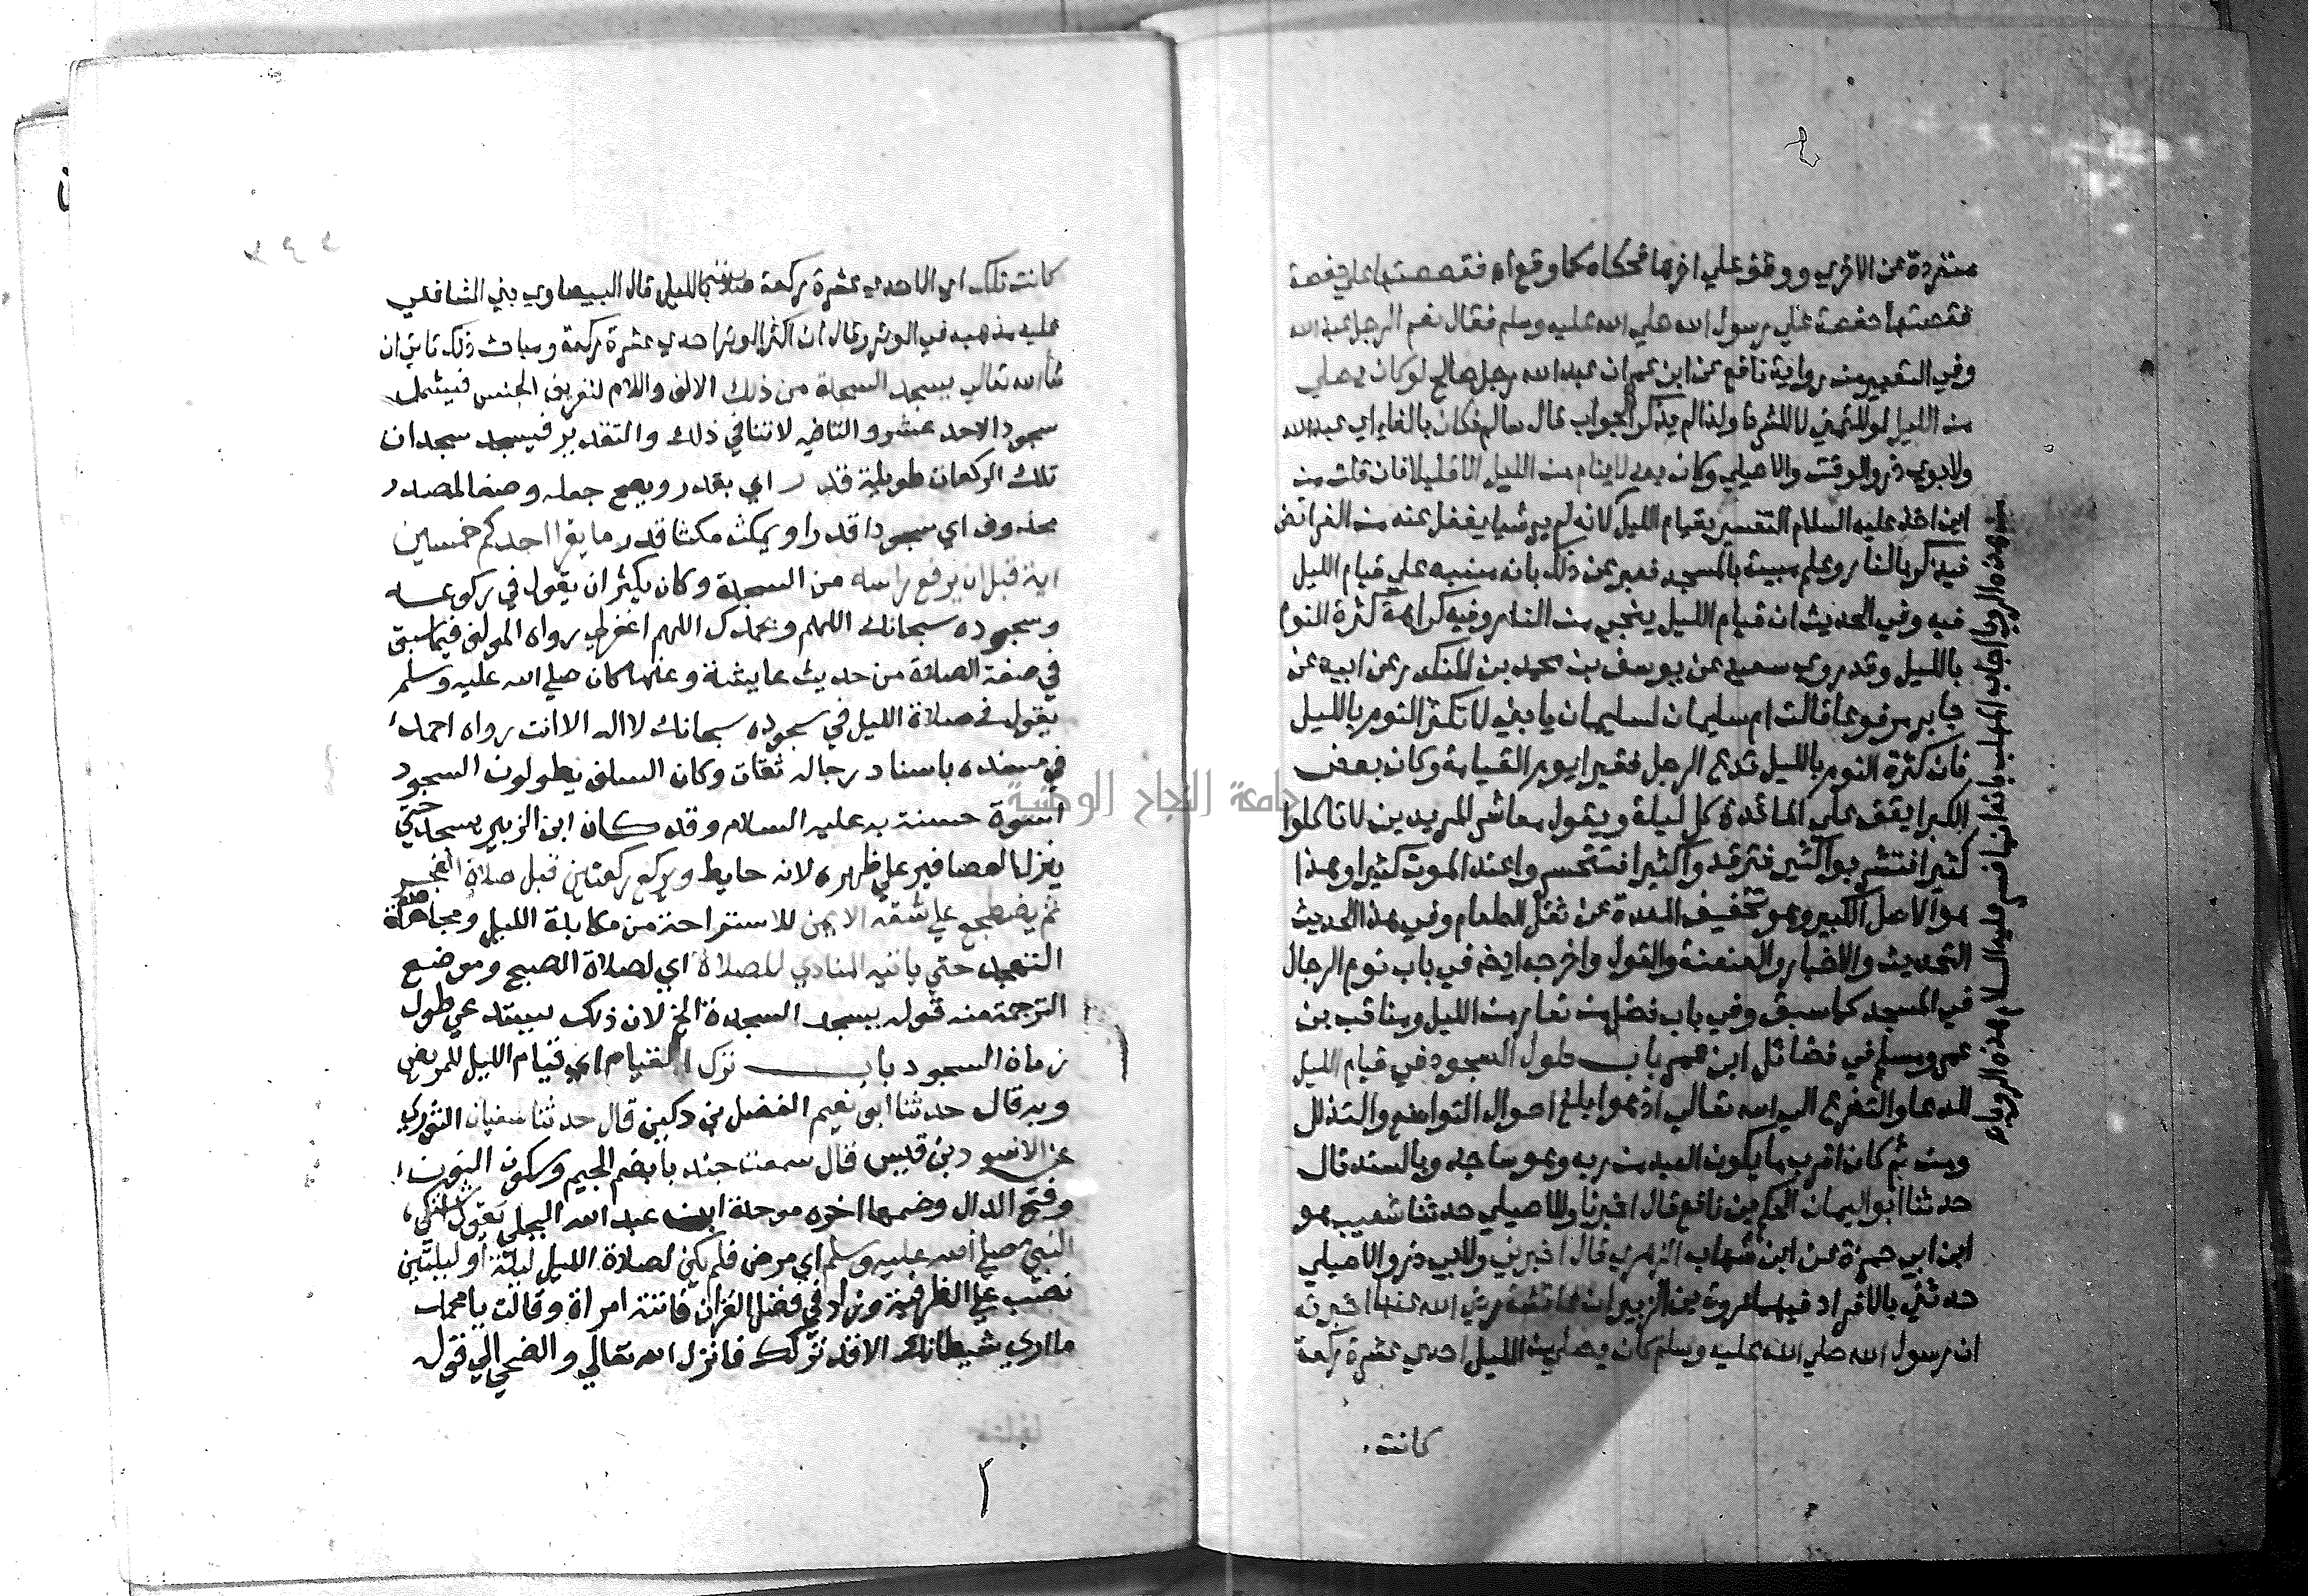 منفردة عن الاخري ووقف علي اخرها فحكاه كما وقع اه فقصصتها علي حفصة
فقصتها حفصة علي رسول الله صلي الله عليه وسلم فقال نعم الرجل عبد الله
وفي التعبير من رواية نافع عن ابن عمر ان عبد الله رجل صالح لو كان يصلي
من الليل لو للتمني لا للشرط ولذا لم يذكر الجواب قال سالم فكان بالفاء اي عبد الله
ولابوي ذر والوقت والاصيلي وكان بعد لا ينام من الليل الا قليلا فان قلت من
اين اخذ عليه السلام التفسير بقيام الليل كانه لم ير شيا يغفل عنه من الفرائض
فيذكر بالنار وعلم مبيته بالمسجد فعبر عن ذلك بانه منبه علي قيام الليل
فيه وفي الحديث ان قيام الليل ينجي من النار وفيه كراهة كثرة النوم
بالليل وقد روي سعيد عن يوسف بن محمد بن المنكدر عن ابيه عن
جابر مرفوعا قالت ام سليمان لسليمان يا بني لا تكثر النوم بالليل
فان كثرة النوم بالليل تدع الرجل فقيرا يوم القيامة وكان بعض
الكبرا يقف علي المائدة كل ليلة ويقول معاشر المريدين لا تاكلوا
كثيرا فتشربوا كثيرا فترقدوا كثيرا فتتحسروا عند الموت كثيرا وهذا
هو الاصل الكبير وهو تخفيف المعدة عن ثقل الطعام وفي هذا الحديث
التحديث والاخبار والعنعنة والقول واخرجه ايضا في باب نوم الرجال
في المسجد كما سبق وفي باب فضل من تعار من الليل ومناقب بن
عمر ومسلم في فضائل ابن عمر باب طول السجود في قيام الليل
للدعا والتضرع الي الله تعالي اذ هو ابلغ احوال التواضع والتذلل
ومن ثم كان اقرب ما يكون العبد من ربه وهو ساجد وبالسند قال
حدثنا ابو اليمان الحكم بن نافع قال اخبرنا وللاصيلي حدثنا شعيب هو
ابن ابي حمزة عن ابن شهاب الزهري قال اخبرني ولابي ذر والاصيلي
حدثني بالافراد فيهما عروة بن الزبير ان عائشة رضي الله عنها اخبرته
ان رسول الله صلي الله عليه وسلم كان يصلي من الليل احدي عشرة ركعة
كانت
كانت تلك اي الاحدي عشرة ركعة صلاته بالليل قال البيضاوي بني الشافعي
عليه مذهبه في الوتر وقال ان اكثر الوتر احدي عشرة ركعة ومباحث ذلك تاتي ان
شاء الله تعالي يسجد السجدة من ذلك الالف واللام لتعريف الجنس فيشمل
سجود الاحد عشر والتا فيه لا تنافي ذلك والتقدير فيسجد سجدات
تلك الركعات طويلة قدر اي بقدر ويصح جعله وصفا لمصدر
محذوف اي سجودا قدرا ويمكث مكثا قدر ما يقرا احدكم خمسين
اية قبل ان يرفع راسه من السجدة وكان يكثر ان يقول في ركوعه
وسجوده سبحانك اللهم وبحمدك اللهم اغفر لي رواه المولف فيما سبق
في صفة الصلاة من حديث عايشة وعنها كان صلي الله عليه وسلم
يقول في صلاة الليل في سجوده سبحانك لا اله الا انت رواه احمد
في مسنده باسناد رجاله ثقات وكان السلف يطولون السجود
اسوة حسنة به عليه السلام وقد كان ابن الزبير يسجد حتي
ينزل العصافير علي ظهره لانه حايط ويركع ركعتين قبل صلاة الفجر
ثم يضطجع علي شقه الايمن للاستراحة من مكابدة الليل ومجاهدة
التهجد حتي ياتيه المنادي للصلاة اي لصلاة الصبح وموضع
الترجمة منه قوله يسجد السجدة الخ لان ذلك يستدعي طول
زمان السجود باب ترك القيام اي قيام الليل للمريض
وبه قال حدثنا ابو نعيم الفضل بن دكين قال حدثنا سفيان الثوري
عن الاسود بن قيس قال سمعت جندبا بضم الجيم وسكون النون
وفتح الدال وضمها اخره موحدة ابن عبد الله البجلي يقول اشتكي
النبي صلي الله عليه وسلم اي مرض فلم يكن لصلاة الليل ليلة او ليلتين
نصب علي الظرفية وزاد في فضل القران فاتته امراة وقالت يا محمد
ما اري شيطانك الا قد تركك فانزل الله تعالي والضحي الي قوله
جامعة النجاح الوطنية